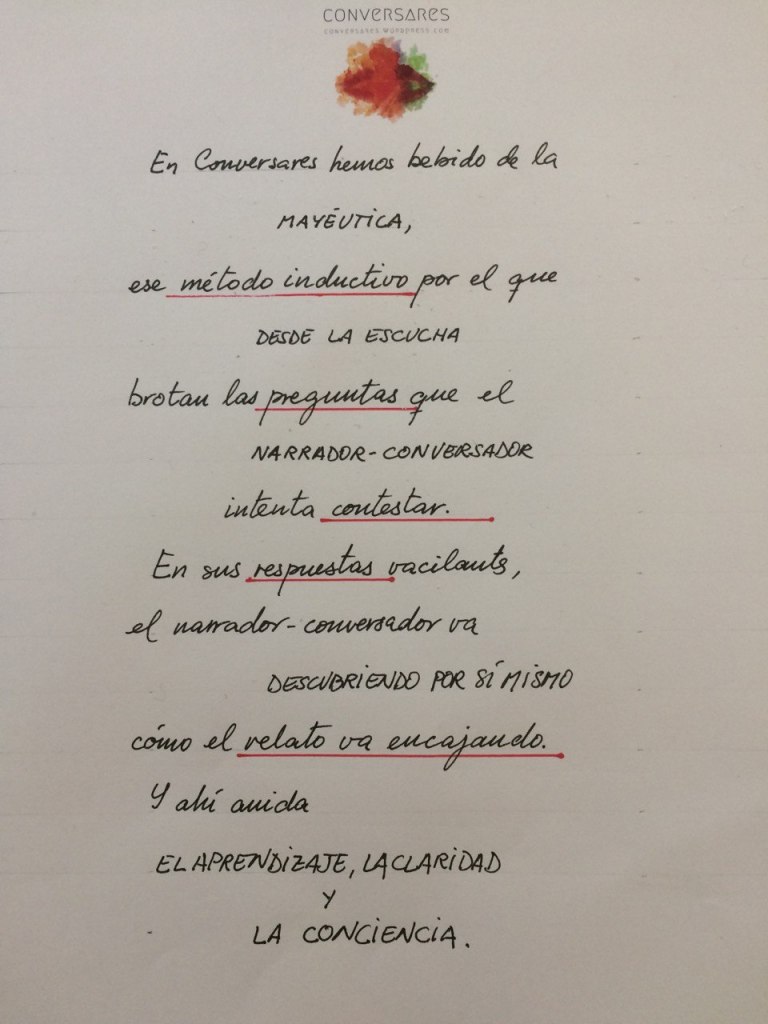 CONVERSARES
CONVERSARES.WORDPRESS.COM
En Conversares hemos bebido de la
MAYÉUTICA,
ese método inductivo por el que
DESDE LA ESCUCHA
brotan las preguntas que el
NARRADOR-CONVERSADOR
intenta contestar.
En sus respuestas vacilants,
el narrador-conversador va
DESCUBRIENDO POR SÍ MISMO
cómo el relato va encajando.
Y ahí anida
EL APRENDIZAJE, LA CLARIDAD
Y
LA CONCIENCIA.